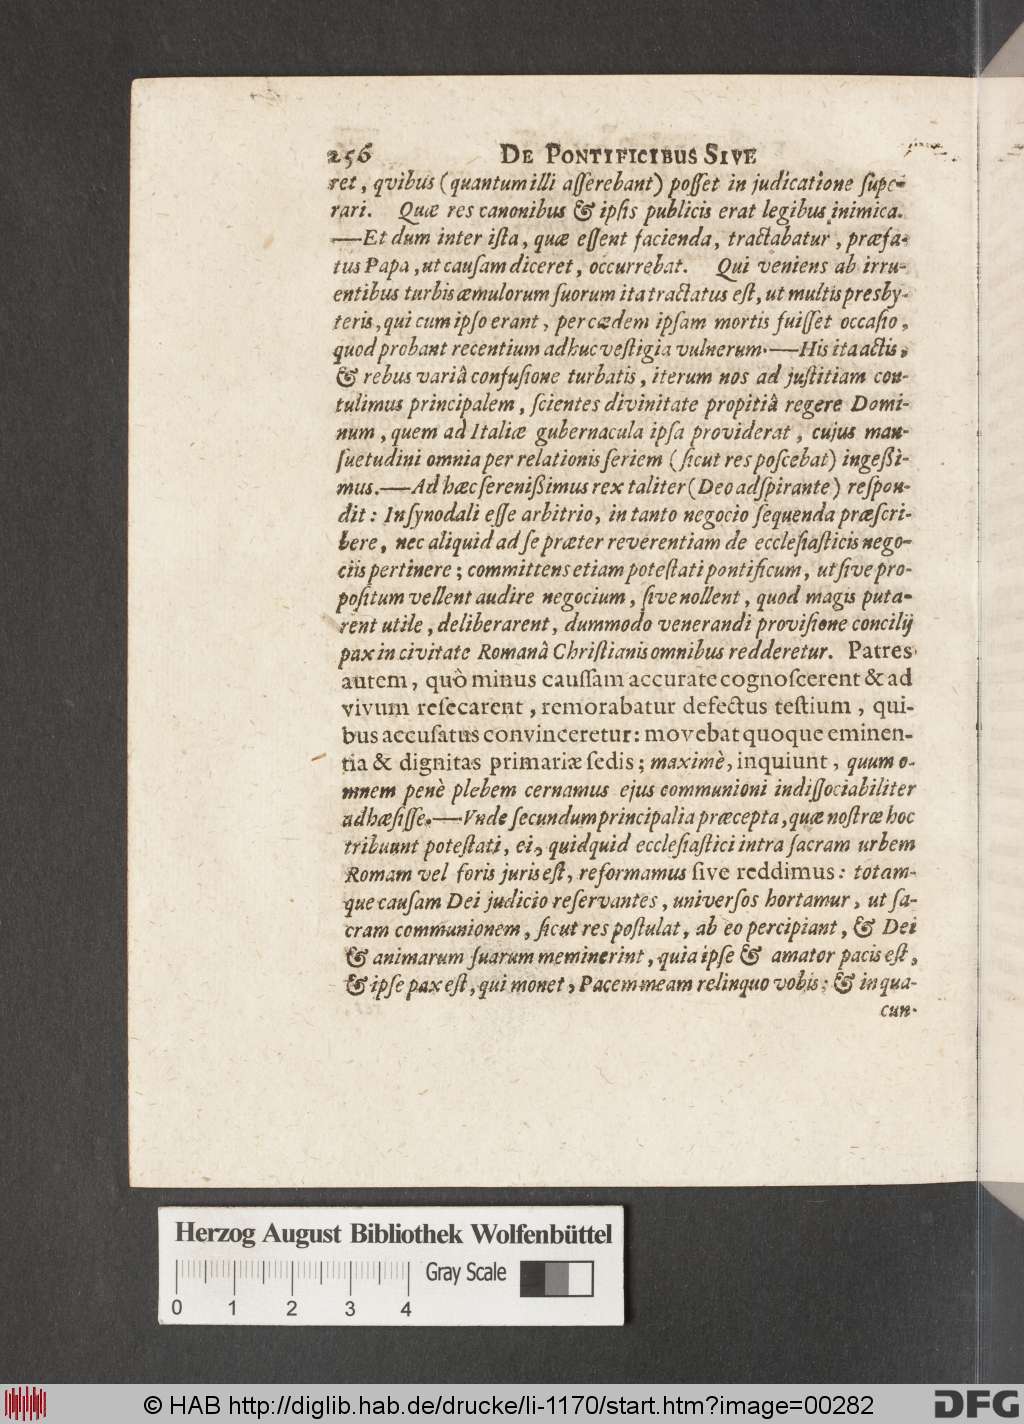 256 De Pontificibus Sive
ret, qvibus (quantum illi aſſerebant) poſſet in judicatione ſupe-
rari. Quæ res canonibus & ipſis publicis erat legibus inimica.
—Et dum inter iſta, quæ eſſent facienda, tractabatur, præfa-
tus Papa, ut cauſam diceret, occurrebat. Qui veniens ab irru-
entibus turbis æmulorum ſuorum ita tractatus eſt, ut multis presby-
teris, qui cum ipſo erant, per cædem ipſam mortis fuiſſet occaſio,
quod probant recentium adhuc veſtigia vulnerum.—His ita actis,
& rebus variâ confuſione turbatis, iterum nos ad juſtitiam con-
tulimus principalem, ſcientes divinitate propitiâ regere Domi-
num, quem ad Italiæ gubernacula ipſa providerat, cujus man-
ſuetudini omnia per relationis ſeriem (ſicut res poſcebat) ingeßi-
mus.—Ad hæc ſerenißimus rex taliter (Deo adſpirante) reſpon-
dit: In ſynodali eſſe arbitrio, in tanto negocio ſequenda præſcri-
bere, nec aliquid ad ſe præter reverentiam de eccleſiaſticis nego-
ciis pertinere; committens etiam poteſtati pontificum, ut ſive pro-
poſitum vellent audire negocium, ſive nollent, quod magis puta-
rent utile, deliberarent, dummodo venerandi proviſione concilij
pax in civitate Romanâ Chriſtianis omnibus redderetur. Patres
autem, quò minus cauſſam accurate cognoſcerent & ad
vivum reſecarent, remorabatur defectus teſtium, qui-
bus accuſatus convinceretur: movebat quoque eminen-
tia & dignitas primariæ ſedis; maximè, inquiunt, quum o-
mnem penè plebem cernamus ejus communioni indiſſociabiliter
adhæſiſſe.—Vnde ſecundum principalia præcepta, quæ noſtræ hoc
tribuunt poteſtati, ei, quidquid eccleſiaſtici intra ſacram urbem
Romam vel foris juris eſt, reformamus ſive reddimus: totam-
que cauſam Dei judicio reſervantes, univerſos hortamur, ut ſa-
cram communionem, ſicut res poſtulat, ab eo percipiant, & Dei
& animarum ſuarum meminerint, quia ipſe & amator pacis eſt,
& ipſe pax eſt, qui monet, Pacem meam relinquo vobis: & in qua-
cun-
Herzog August Bibliothek Wolfenbüttel
Gray Scale
0 1 2 3 4
© HAB http://diglib.hab.de/drucke/li-1170/start.htm?image=00282
DFG